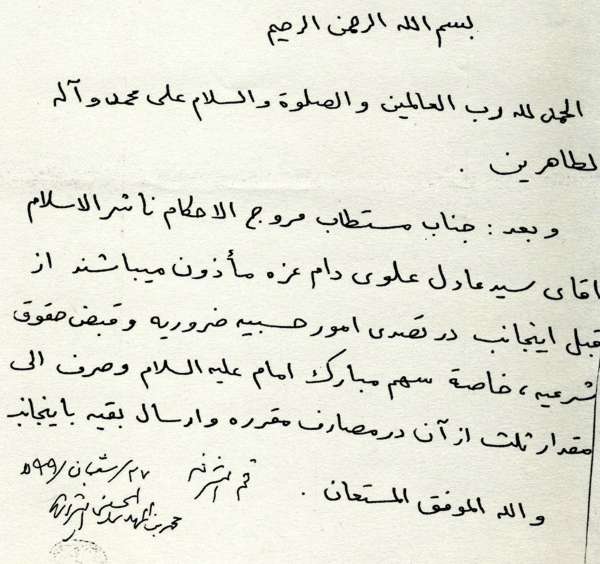 بسم الله الرحمن الرحیم
الحمد لله رب العالمین والصلوة والسلام علی محمد وآله
لطاهرین .
وبعد : جناب مستطاب مروج الاحکام ناشر الاسلام
اقای سید عادل علوی دام عزه مأذون میباشند از
قبل اینجانب در تصدی امور حسبیه ضروریه وقبض حقوق
شرعیه ، خاصة سهم مبارک امام علیه السلام وصرف الی
مقدار ثلث از آن در مصارف مقرره وارسال بقیه باینجانب
والله الموفق المستعان .
قم المشرفه
۲۷/شعبان/۹۹
محمد بن المهدی الحسینی